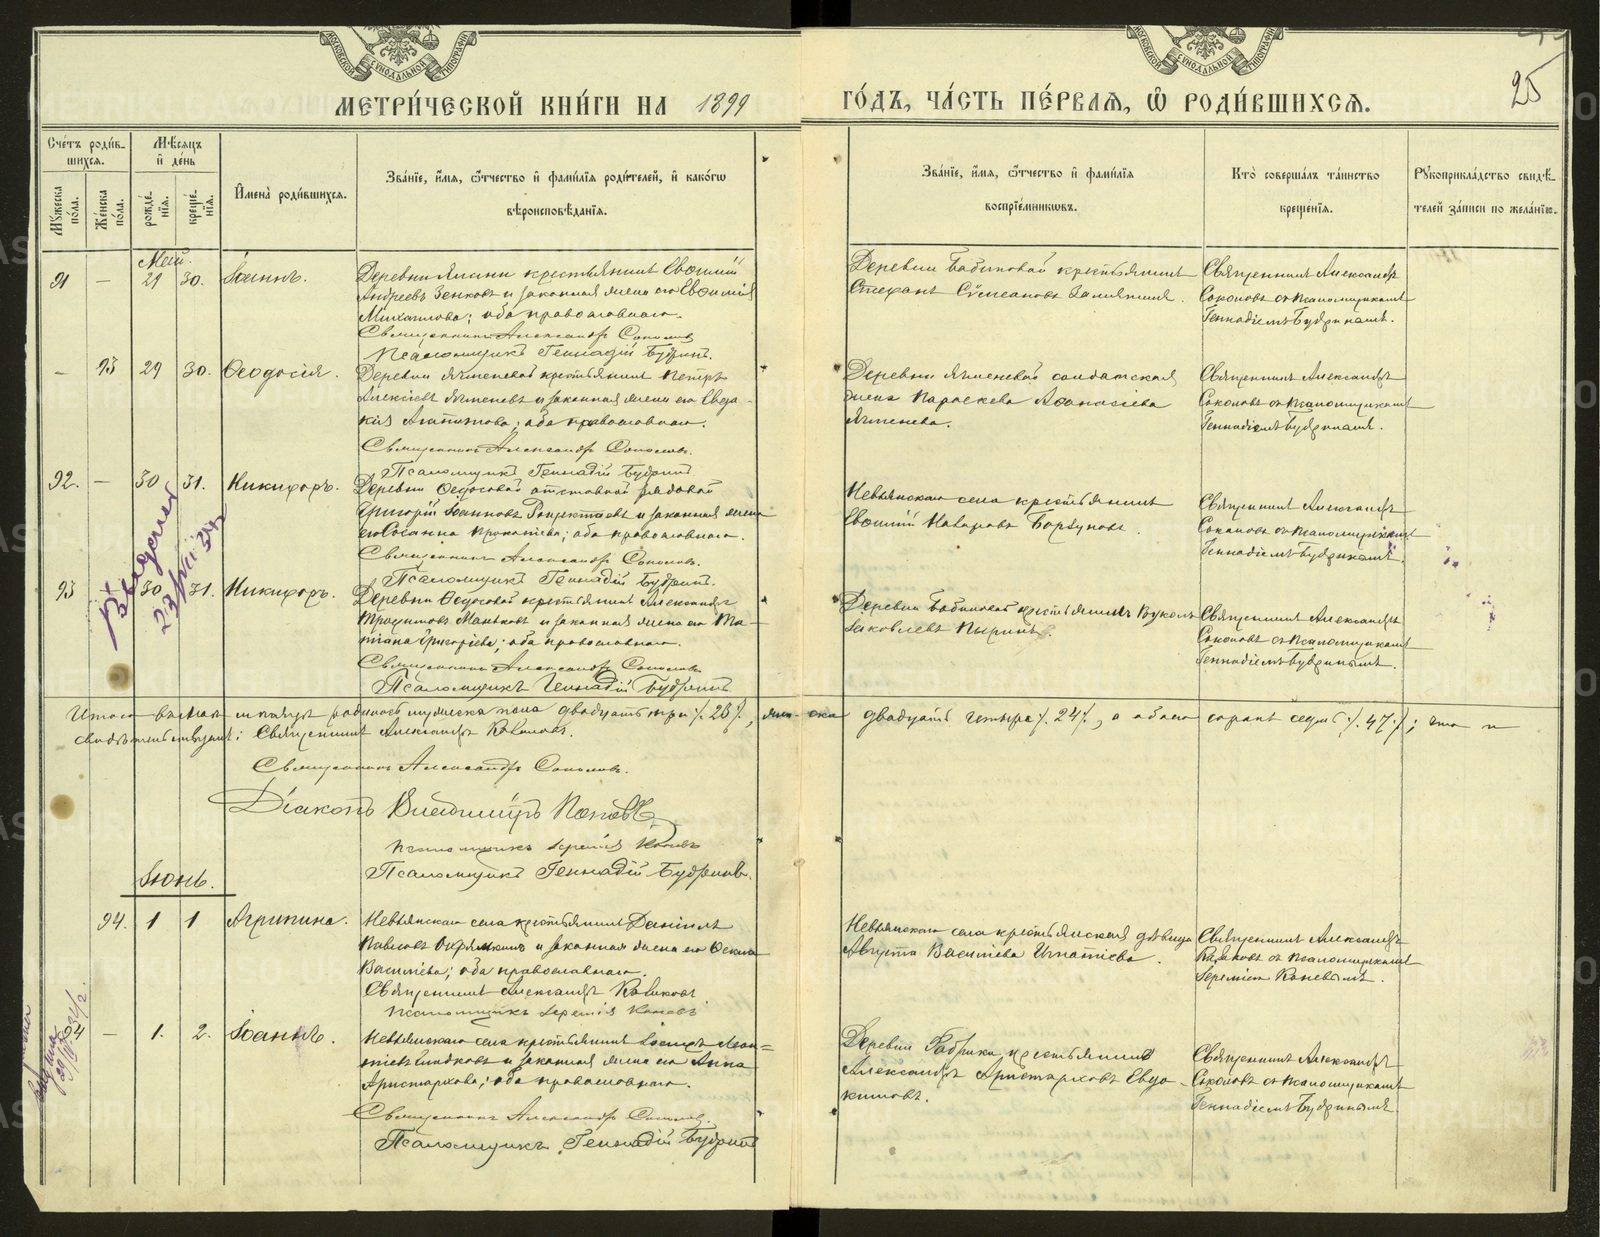 МОСКОВСКОЙ СѴНОДАЛЬНОЙ ТИПОГРАФІИ
МОСКОВСКОЙ СѴНОДАЛЬНОЙ ТИПОГРАФІИ
25
МЕТРИ́ЧЕСКОЙ КНИ́ГИ НА 1899 ГО́ДЪ, ЧА́СТЬ ПЕ́РВАЯ, Ѽ РОДИ́ВШИХСЯ.
Сче́тъ роди́вшихся.
Му́жеска по́ла.
Же́нска по́ла.
Мѣ́сяцъ и де́нь
рожде́нія.
креще́нія.
И҆мена̀ роди́вшихся.
Зва́ніе, и҆́мя, ѻ҆́тчество и҆ фами́лія роди́телей, и҆ како́гѡ
вѣроисповѣ́данія.
Зва́ніе, и҆́мя, ѻ҆́тчество и҆ фами́лія
воспріе́мниковъ.
Кто̀ соверша́лъ та́инство
креще́нія.
Рꙋкоприкла́дство свидѣ́-
телей за́писи по жела́нію.
Май.
91 — 29 30. Іоаннъ.
Деревни крестьянинъ Евѳимій
Андреевъ Зенковъ и законная жена его Евѳимія
Михаилова; оба православнаго.
Священникъ Александръ Соколовъ
Псаломщикъ Геннадій Будринъ.
Деревни Бабиновой крестьянинъ
Стефанъ Сѵмеоновъ
Священникъ Александръ
Соколовъ съ псаломщикомъ
Геннадіемъ Будринымъ.
— 93 29 30. Ѳеодосія.
Деревни Ячменевой крестьянинъ Петръ
Алексіевъ Ячменевъ и законная жена его Евдо-
кія Агапитова; оба православнаго.
Священникъ Александръ Соколовъ.
Псаломщикъ Геннадій Будринъ
Деревни Ячменевой солдатская
жена Параскева Аѳанасіева
Ячменева.
Священникъ Александръ
Соколовъ съ псаломщикомъ
Геннадіемъ Будринымъ.
92. — 30 31. Никифоръ.
Деревни Ѳедосовой отставной рядовой
Григорій Іоанновъ и законная жена
его Сосанна; оба православнаго.
Священникъ Александръ Соколовъ.
Псаломщикъ Геннадій Будринъ.
Невьянскаго села крестьянинъ
Евѳимій Назаровъ Борзуновъ.
Священникъ Александръ
Соколовъ съ псаломщикомъ
Геннадіемъ Будринымъ.
93 — 30 31. Никифоръ.
Деревни Ѳедосовой крестьянинъ Александръ
Трофимовъ Маньковъ и законная жена его Та-
тіана Григоріева; оба православнаго.
Священникъ Александръ Соколовъ
Псаломщикъ Геннадій Будринъ
Деревни Бабиновой крестьянинъ Вуколъ
Іаковлевъ Пыринъ.
Священникъ Александръ
Соколовъ съ псаломщикомъ
Геннадіемъ Будринымъ.
Итого въ маѣ мѣсяцѣ родилось мужеска пола двадцать три /.23/., женска двадцать четыре /.24/., а обоего сорокъ семь /.47./; что и
свидѣтельствуютъ: Священникъ Александръ
Священникъ Александръ Соколовъ.
Діаконъ Владиміръ Поповъ
Псаломщикъ Іеремія Коневъ
Псаломщикъ Геннадій Будринъ.
Іюнь.
94. 1 1 Агрипина.
Невьянскаго села крестьянинъ Даніилъ
Павловъ и законная жена его Ѳекла
Василіева; оба православнаго.
Священникъ Александръ
Псаломщикъ Іеремія Коневъ
Невьянскаго села крестьянская дѣвица
Августа Василіева Игнатіева.
Священникъ Александръ
съ псаломщикомъ
Іереміею Коневымъ.
94 — 1. 2. Іоаннъ.
Невьянскаго села крестьянинъ
и законная жена его Анна
Аристархова; оба православнаго.
Священникъ Александръ Соколовъ.
Псаломщикъ Геннадій Будринъ
Деревни Фабрики крестьянинъ
Александръ Аристарховъ Евдо-
кимовъ.
Священникъ Александръ
Соколовъ съ псаломщикомъ
Геннадіемъ Будринымъ